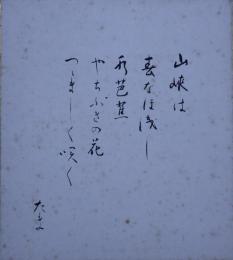 山峡は
春なほ浅し
水芭蕉
やちぶきの花
つゝましく咲く
たま